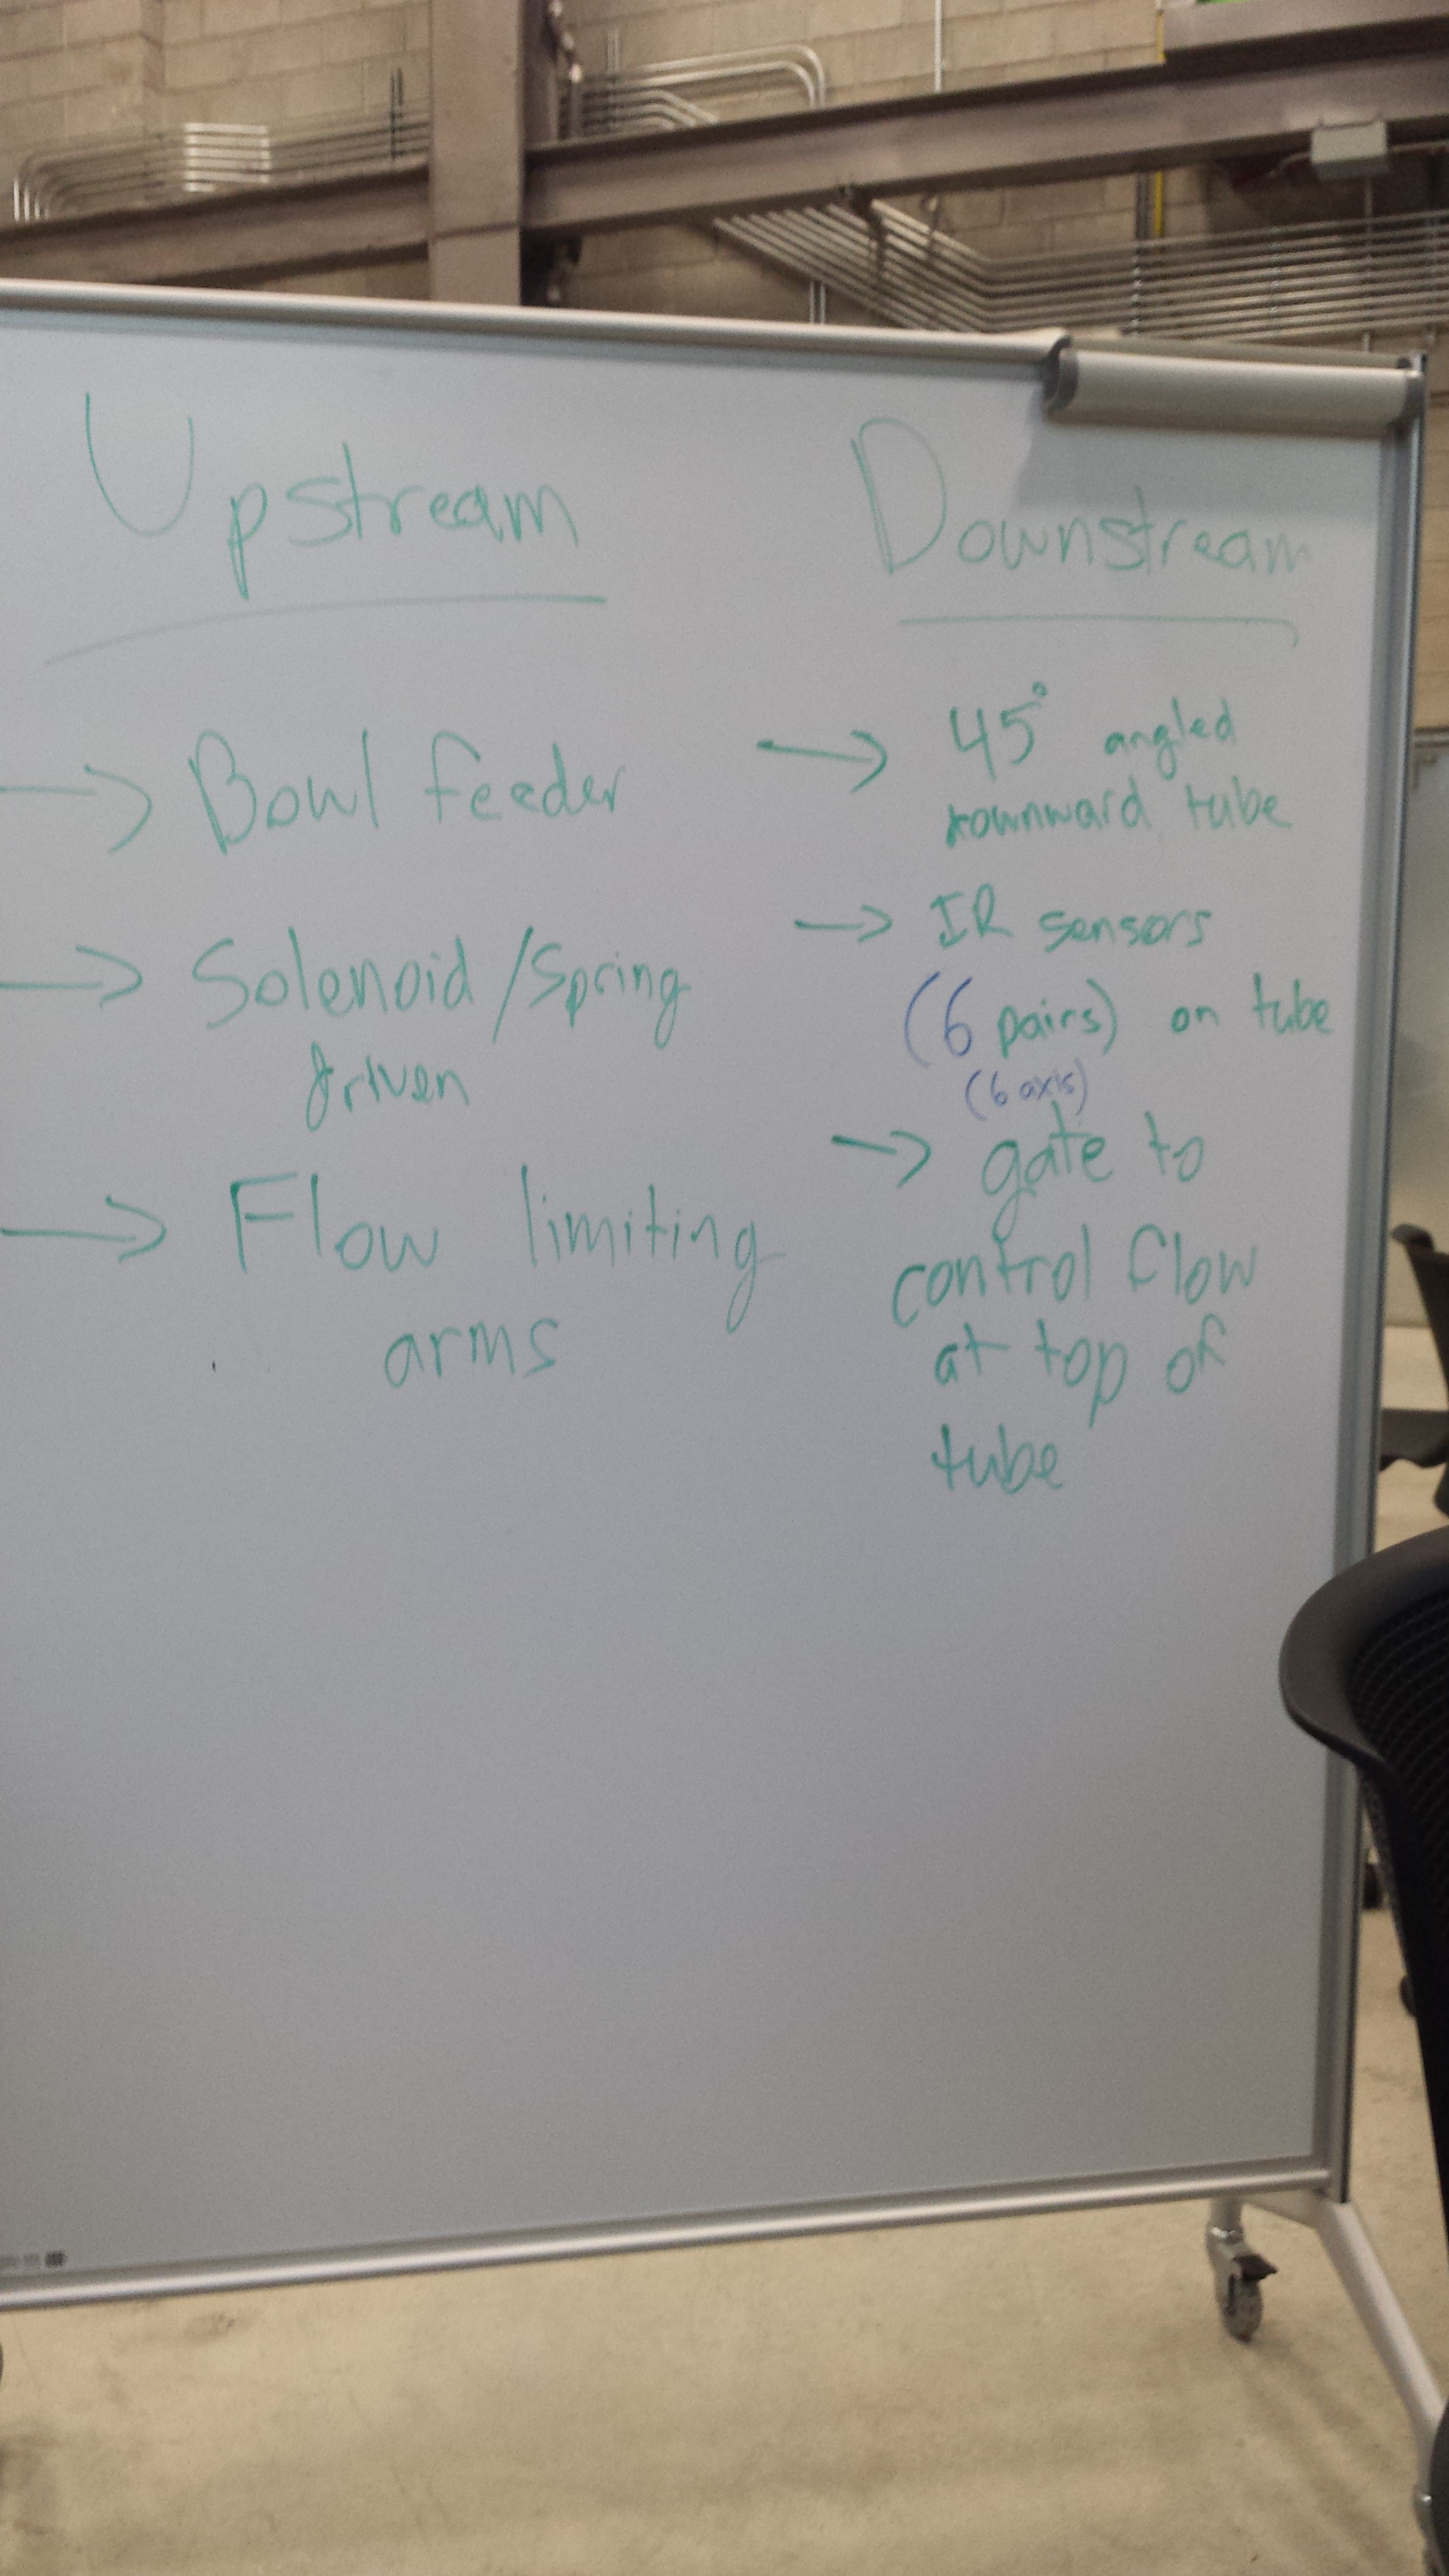 Upstream
→ Bowl feeder
→ Solenoid/Spring
driven
→ Flow limiting
arms
Downstream
→ 45° angled
downward tube
→ IR sensors
(6 pairs) on tube
(6 axis)
→ gate to
control flow
at top of
tube